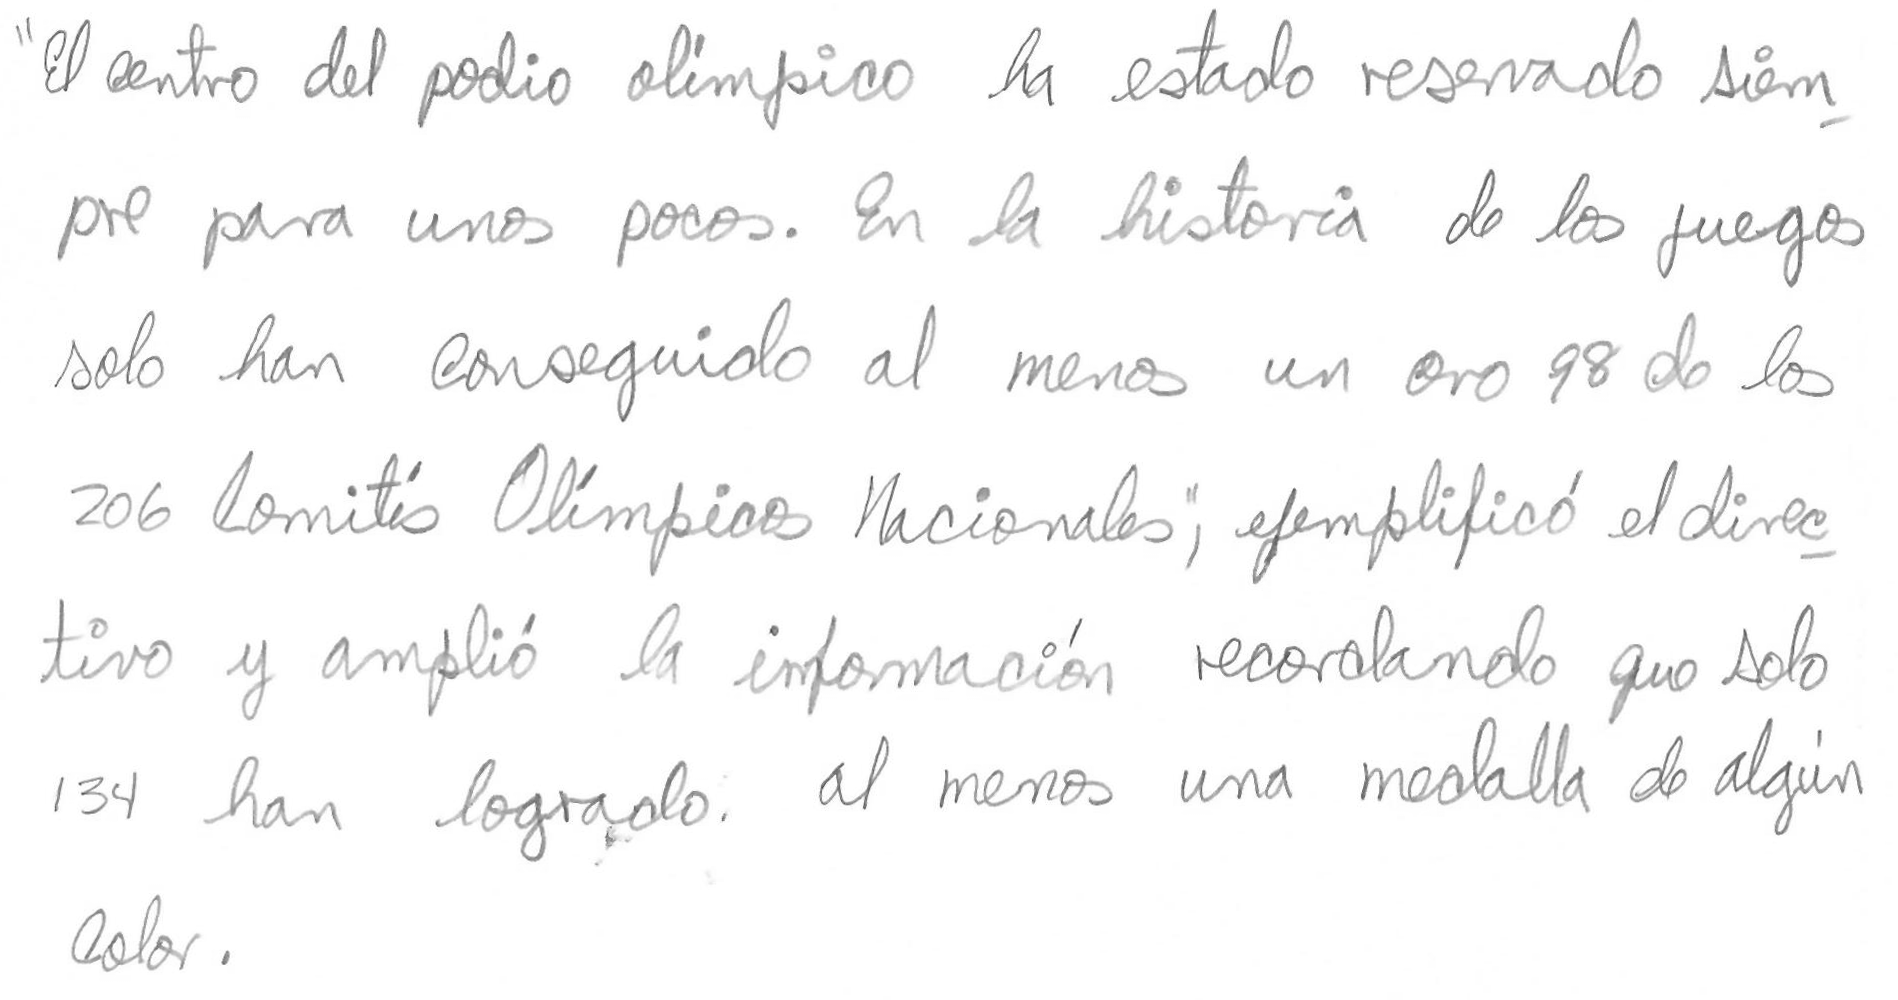 "El centro del podio olímpico ha estado reservado siem_
pre para unos pocos. En la historia de los juegos
solo han conseguido al menos un oro 98 de los
206 Comités Olímpicos Nacionales", ejemplificó el direc_
tivo y amplió la información recordando que solo
134 han logrado. al menos una medalla de algún
color.